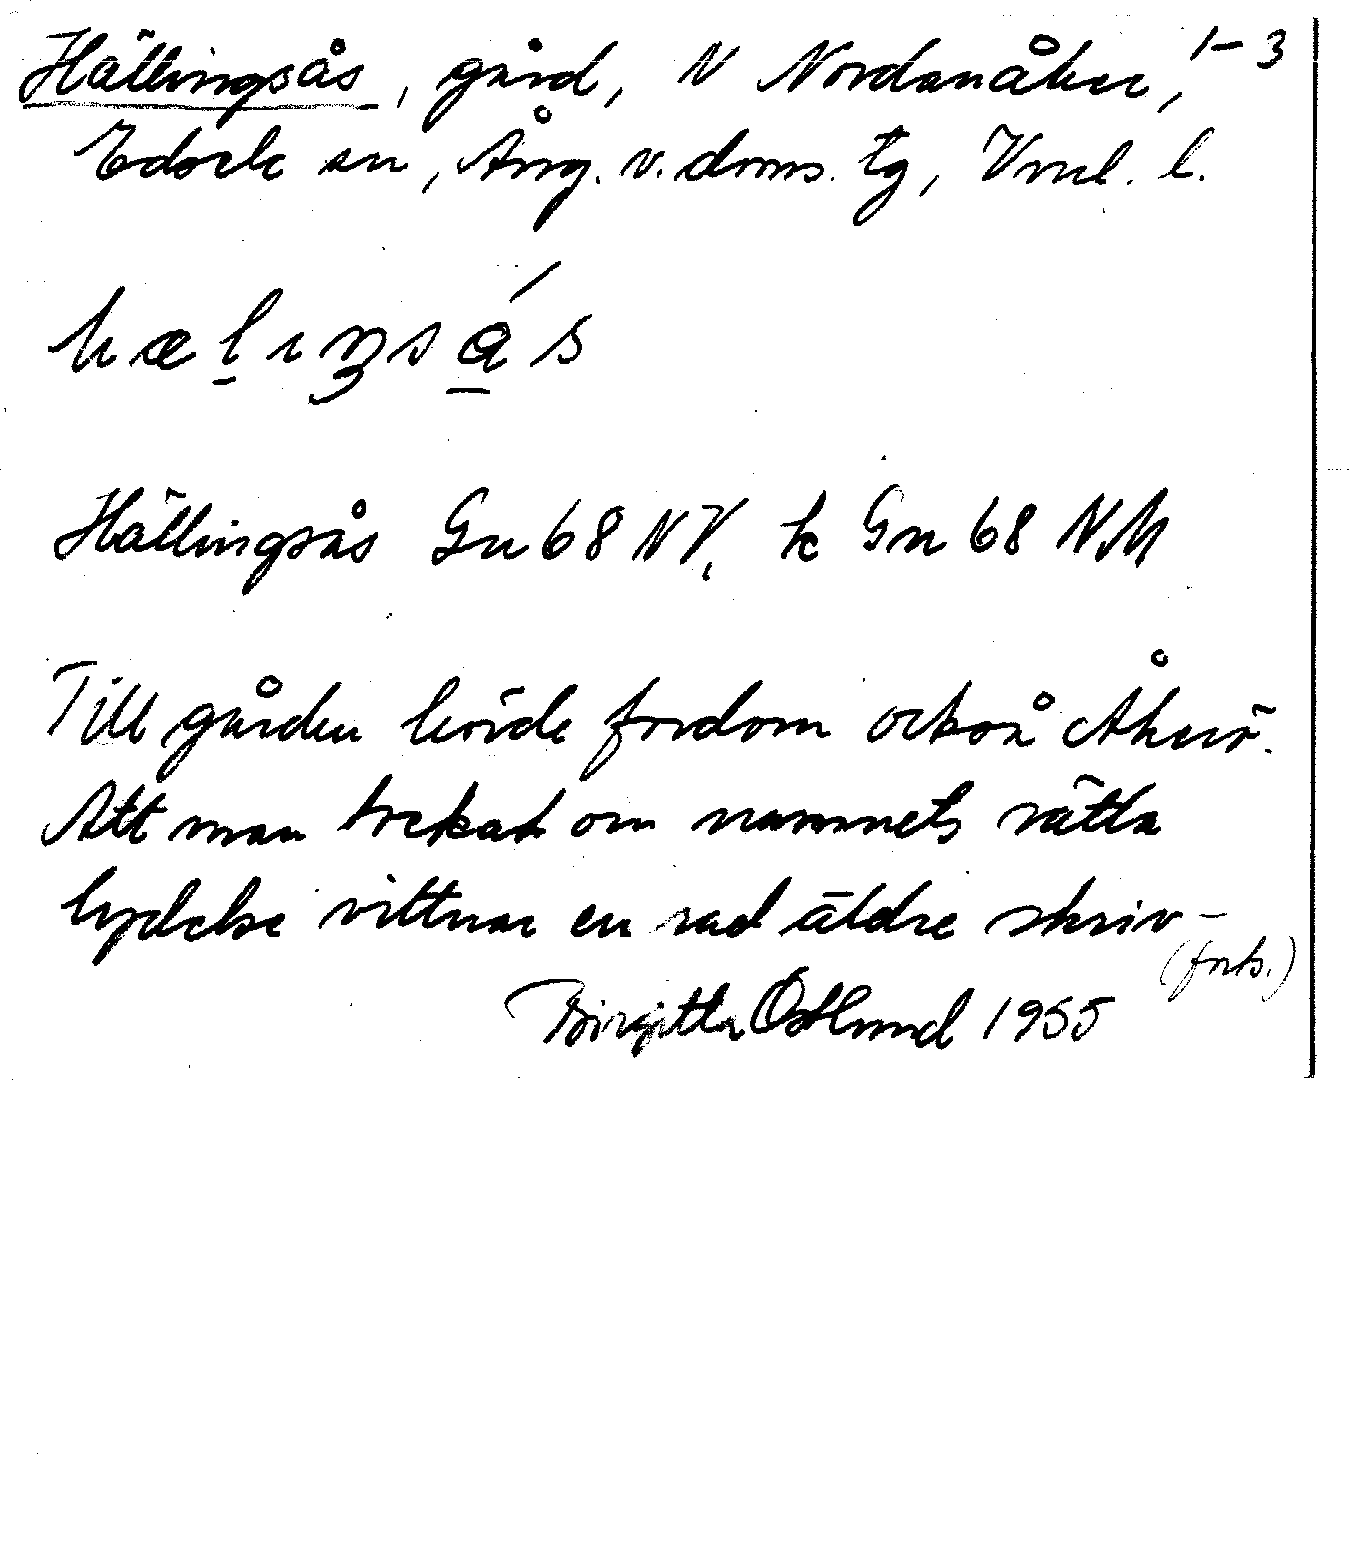 Hällingsås, gård, N Nordanåker, 1-3
Edsele sn, Ång. v. doms. tg, Vnrl. l.
Hällingsås Gn 68 NV, k Gn 68 NM
Till gården hörde fordom också Åkerö.
Att man tvekat om namnets rätta
lydelse vittnar en rad äldre skriv-
(forts.)
Birgitta Östlund 1955